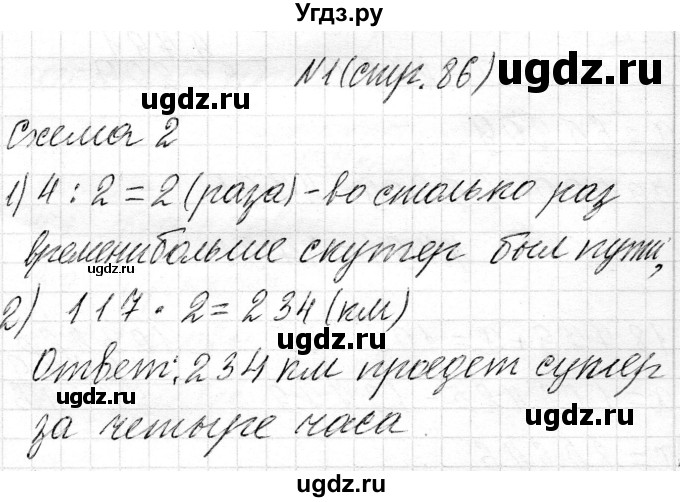 Угдз.ру
N1(стр. 86)
ugdz.ru
ugdz.ru
Схема 2
1) 4 : 2 = 2 (раза) - во столько раз
ugdz.ru
ugdz.ru
времени больше скутер был пути,
ugdz.ru
2) 117 · 2 = 234 (км)
ugdz.ru
Ответ: 234 км проедет сутер
ugdz.ru
ugdz.ru
за четыре часа.
ugdz.ru
ugdz.ru